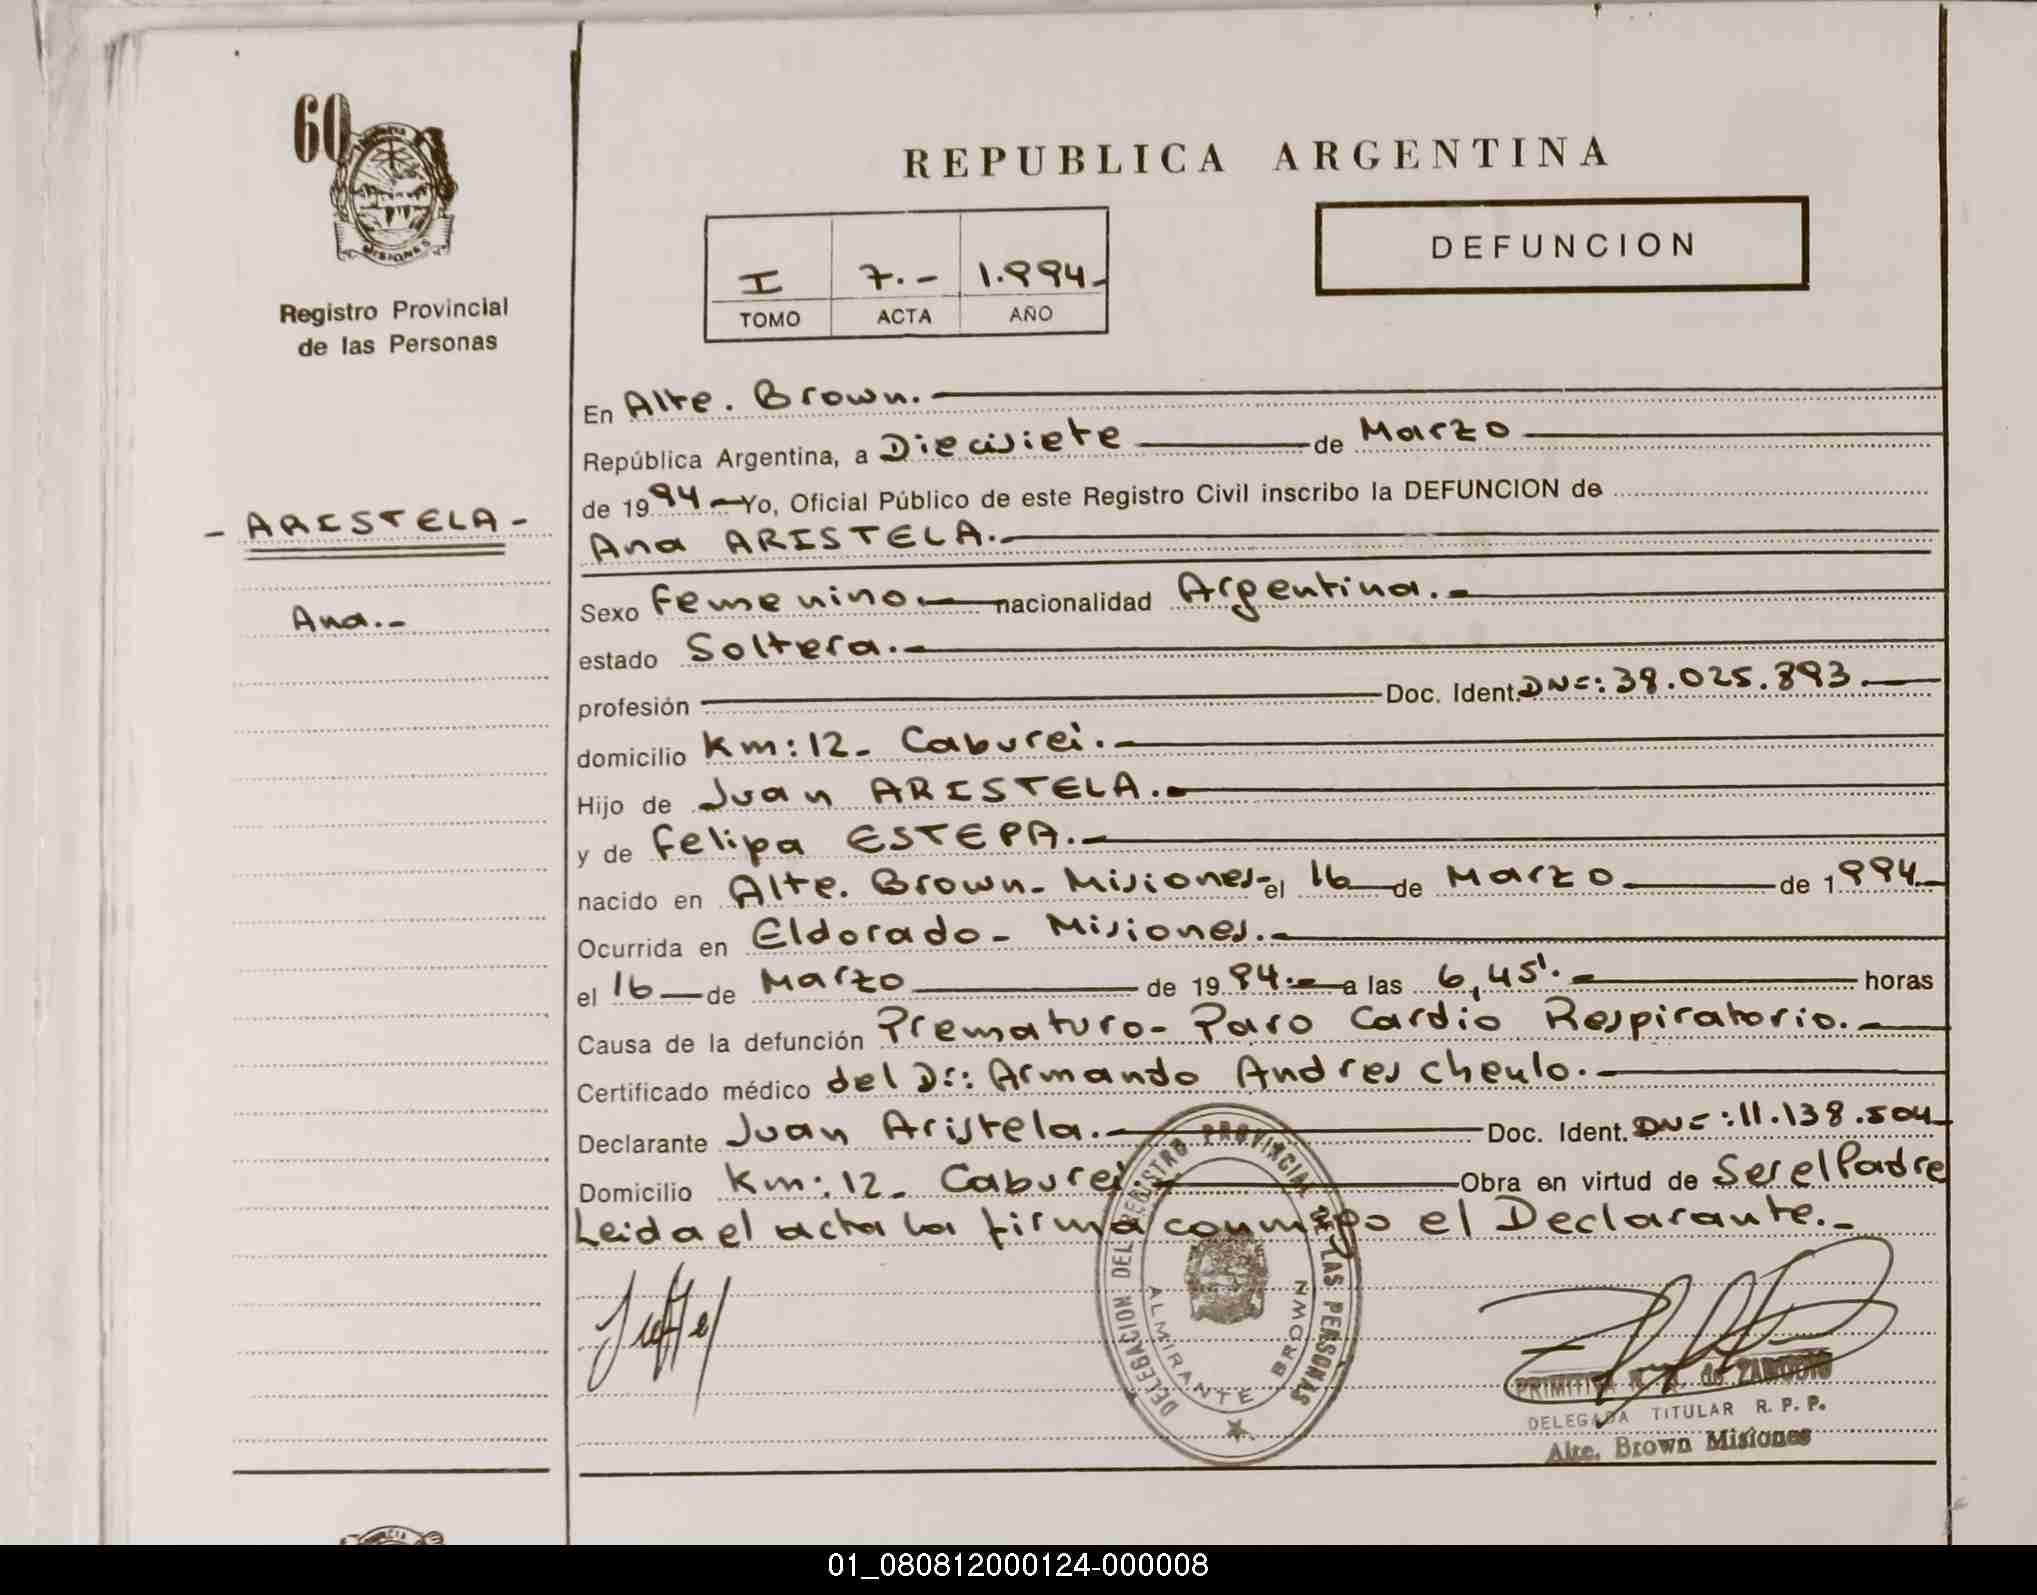 60
MISIONES
Registro Provincial
de las Personas
- ARISTELA -
Ana.-
REPUBLICA ARGENTINA
DEFUNCION
I 7.- 1.994-
TOMO ACTA AÑO
En Alte. Brown.-
República Argentina, a Diecisiete de Marzo
de 1994 - Yo, Oficial Público de este Registro Civil inscribo la DEFUNCION de
Ana ARISTELA.-
Sexo Femenino.- nacionalidad Argentina.-
estado Soltera.-
profesión Doc. Ident. DNI: 38.025.893.
domicilio Km: 12- Caburei.-
Hijo de Juan ARISTELA.-
y de Felipa ESTEPA.-
nacido en Alte. Brown- Misiones- el 16 de Marzo de 1994-
Ocurrida en Eldorado- Misiones.-
el 16 de Marzo de 1994.- a las 6,45'.- horas
Causa de la defunción Prematuro- Paro Cardio Respiratorio.-
Certificado médico del Dr: Armando Andres Cheulo.-
Declarante Juan Aristela.- Doc. Ident. DNI: 11.138.504-
Domicilio Km: 12- Caburei - Obra en virtud de Ser el Padre
Leida el acta la firma conmigo el Declarante.-
DELEGACION DEL REGISTRO PROVINCIAL DE LAS PERSONAS
ALMIRANTE BROWN
PRIMITIVA de
DELEGADA TITULAR R. P. P.
Alte. Brown Misiones
01_080812000124-000008